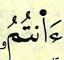 ءَأَنتُمُۥ